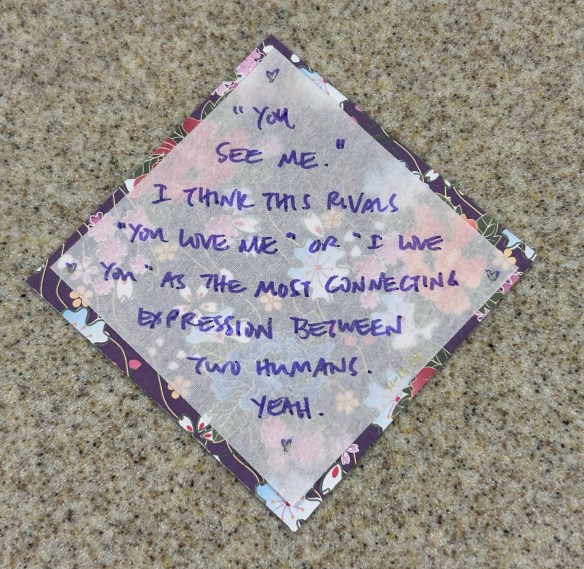 "YOU
SEE ME."
I THINK THIS RIVALS
"YOU LOVE ME" OR "I LOVE
YOU" AS THE MOST CONNECTING
EXPRESSION BETWEEN
TWO HUMANS.
YEAH.